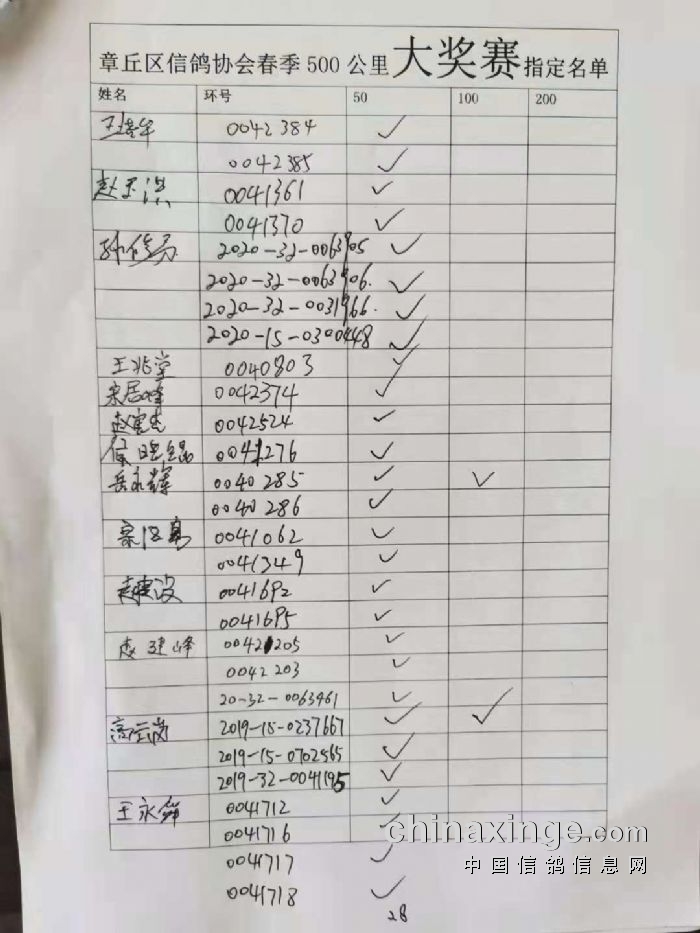 章丘区信鸽协会春季500公里大奖赛指定名单
姓名 环号 50 100 200
0042384 ✓
0042385 ✓
赵玉洪 0041361 ✓
0041370 ✓
2020-32-0063905 ✓
2020-32-0063906. ✓
2020-32-0031966. ✓
2020-15-0300448 ✓
王兆堂 0040803 ✓
宋居峰 0042374 ✓
0042524 ✓
0041276 ✓
岳永辉 0040285 ✓ ✓
0040286 ✓
0041062 ✓
0041349 ✓
赵建设 0041692 ✓
0041695 ✓
袁建峰 0042205 ✓
0042203 ✓
20-32-0063961 ✓
高云岗 2019-15-0237667 ✓ ✓
2019-15-0702565 ✓
2019-32-0041195 ✓
王永 0041712 ✓
0041716 ✓
0041717 ✓
0041718 ✓
28
chinaxinge.com
中国信鸽信息网